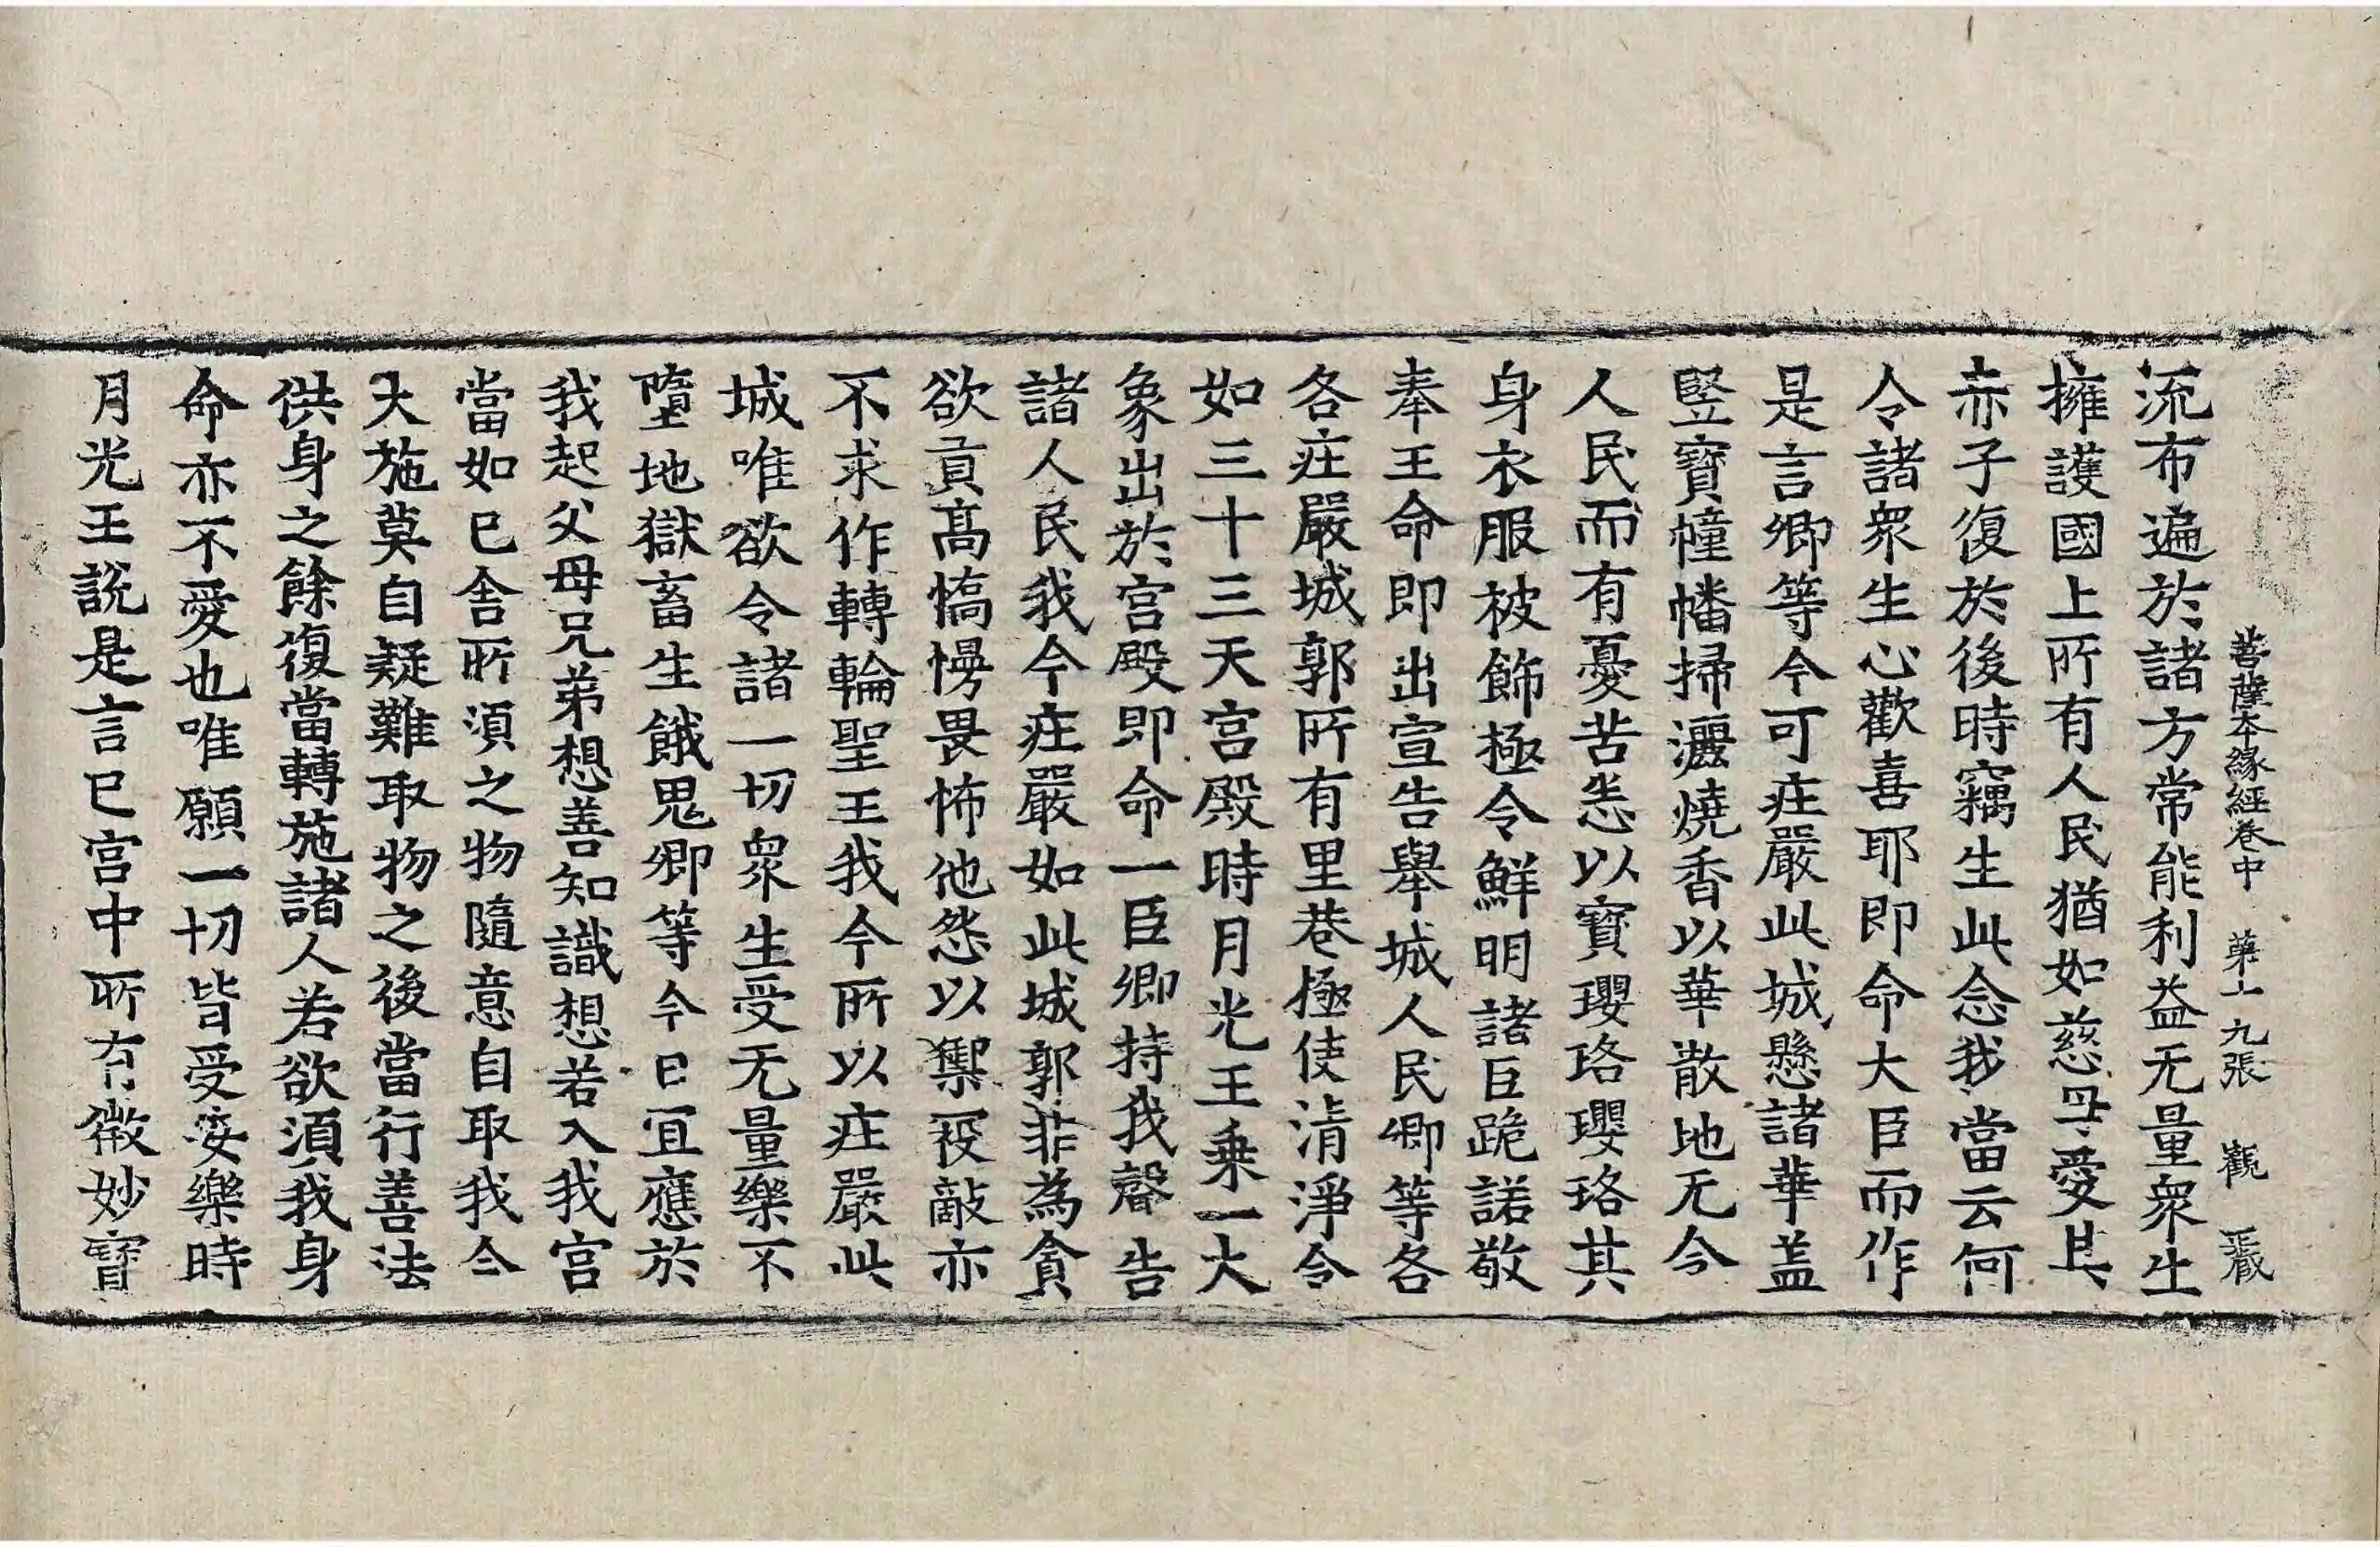 菩薩本緣經卷中 第十九張 觀 藏
流布遍於諸方常能利益无量衆生
擁護國上所有人民猶如慈母愛其
赤子復於後時竊生此念我當云何
令諸衆生心歡喜耶即命大臣而作
是言卿等今可莊嚴此城懸諸華盖
竪寶幢幡掃灑燒香以華散地无令
人民而有憂苦恙以寳瓔珞瓔珞其
身衣服被飾極令鮮明諸臣跪諾敬
奉王命即出宣告舉城人民卿等各
各莊嚴城郭所有里巷極使清淨令
如三十三天宫殿時月光王乗一大
象出於宫殿即命一臣卿持我聲告
諸人民我今莊嚴如此城郭非為貪
欲貢髙憍慢畏怖他怨以禦彊敵亦
不求作轉輪聖王我今所以莊嚴此
城唯欲令諸一切衆生受无量樂不
墮地獄畜生餓鬼卿等今日冝應於
我起父母兄弟想善知識想若入我宫
當如已舍所湏之物隨意自取我今
大施莫自疑難取物之後當行善法
供身之餘復當轉施諸人若欲湏我身
命亦不愛也唯願一切皆受安樂時
月光王說是言已宫中所有微妙寳